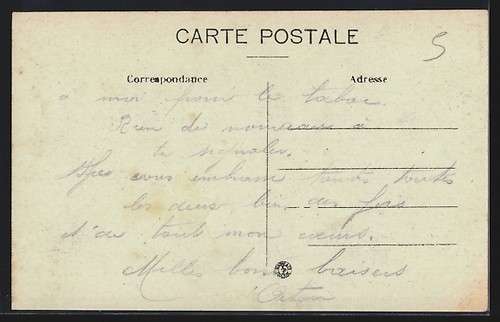 CARTE POSTALE
5
Correspondance
Adresse
a moi pour le tabac.
Rien de nouveau à
te signaler.
vous embrasse toutes
les deux bien des fois
et de tout mon cœur.
Milles bons baisers